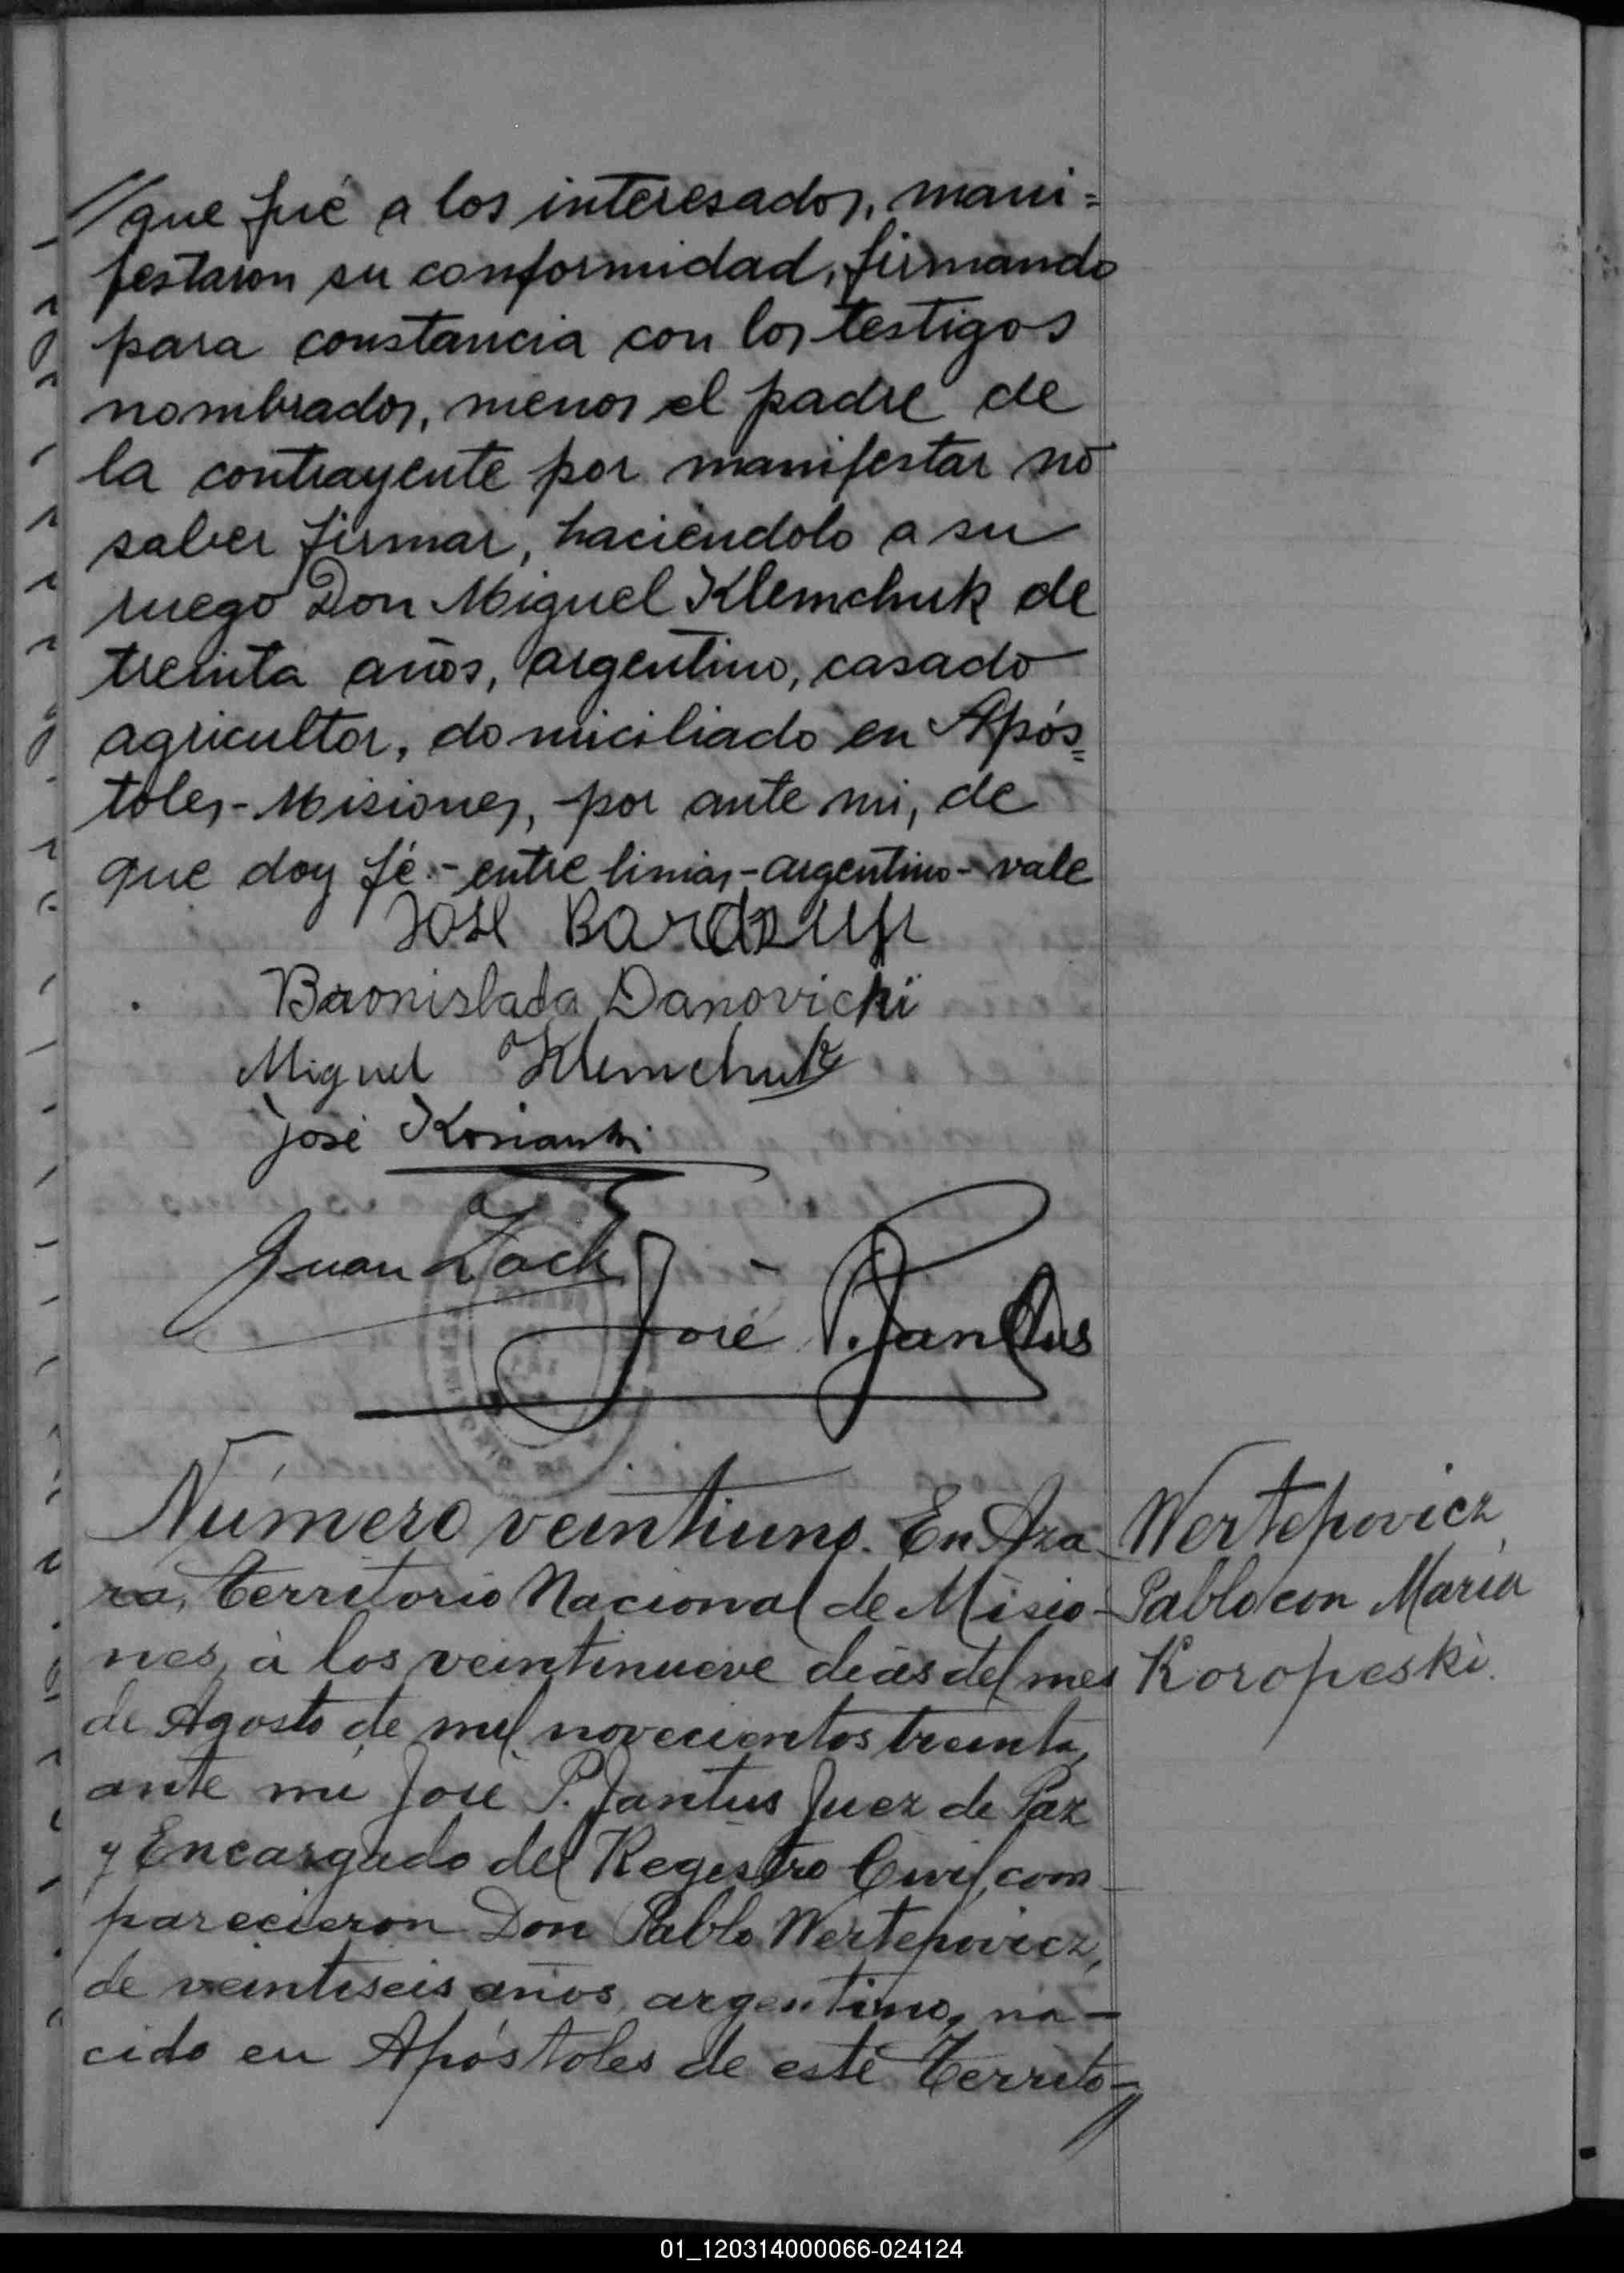 //que fué a los interesados, mani=
festaron su conformidad, firmando
para constancia con los testigos
nombrados, menos el padre de
la contrayente por manifestar no
saber firmar, haciéndolo a su
ruego Don Miguel Klemchuk de
treinta años, argentino, casado
agricultor, domiciliado en Após=
toles-Misiones, por ante mi, de
que doy fé.- entre linias-argentino-vale
José
Bronislada Danovicki
Miguel Klemchuk
José
Juan Zack
José P. Jantus
Número veintiuno. En Aza
ra, Territorio Nacional de Misio-
nes, a los veintinueve dias del mes
de Agosto de mil novecientos treinta,
ante mi José P. Jantus Juez de Paz
y Encargado del Registro Civil, com
parecieron Don Pablo Wertepovicz,
de veintiseis años, argentino, na-
cido en Apóstoles de este Territo-//
Wertepovicz
Pablo con María
Koropeski.
01_120314000066-024124